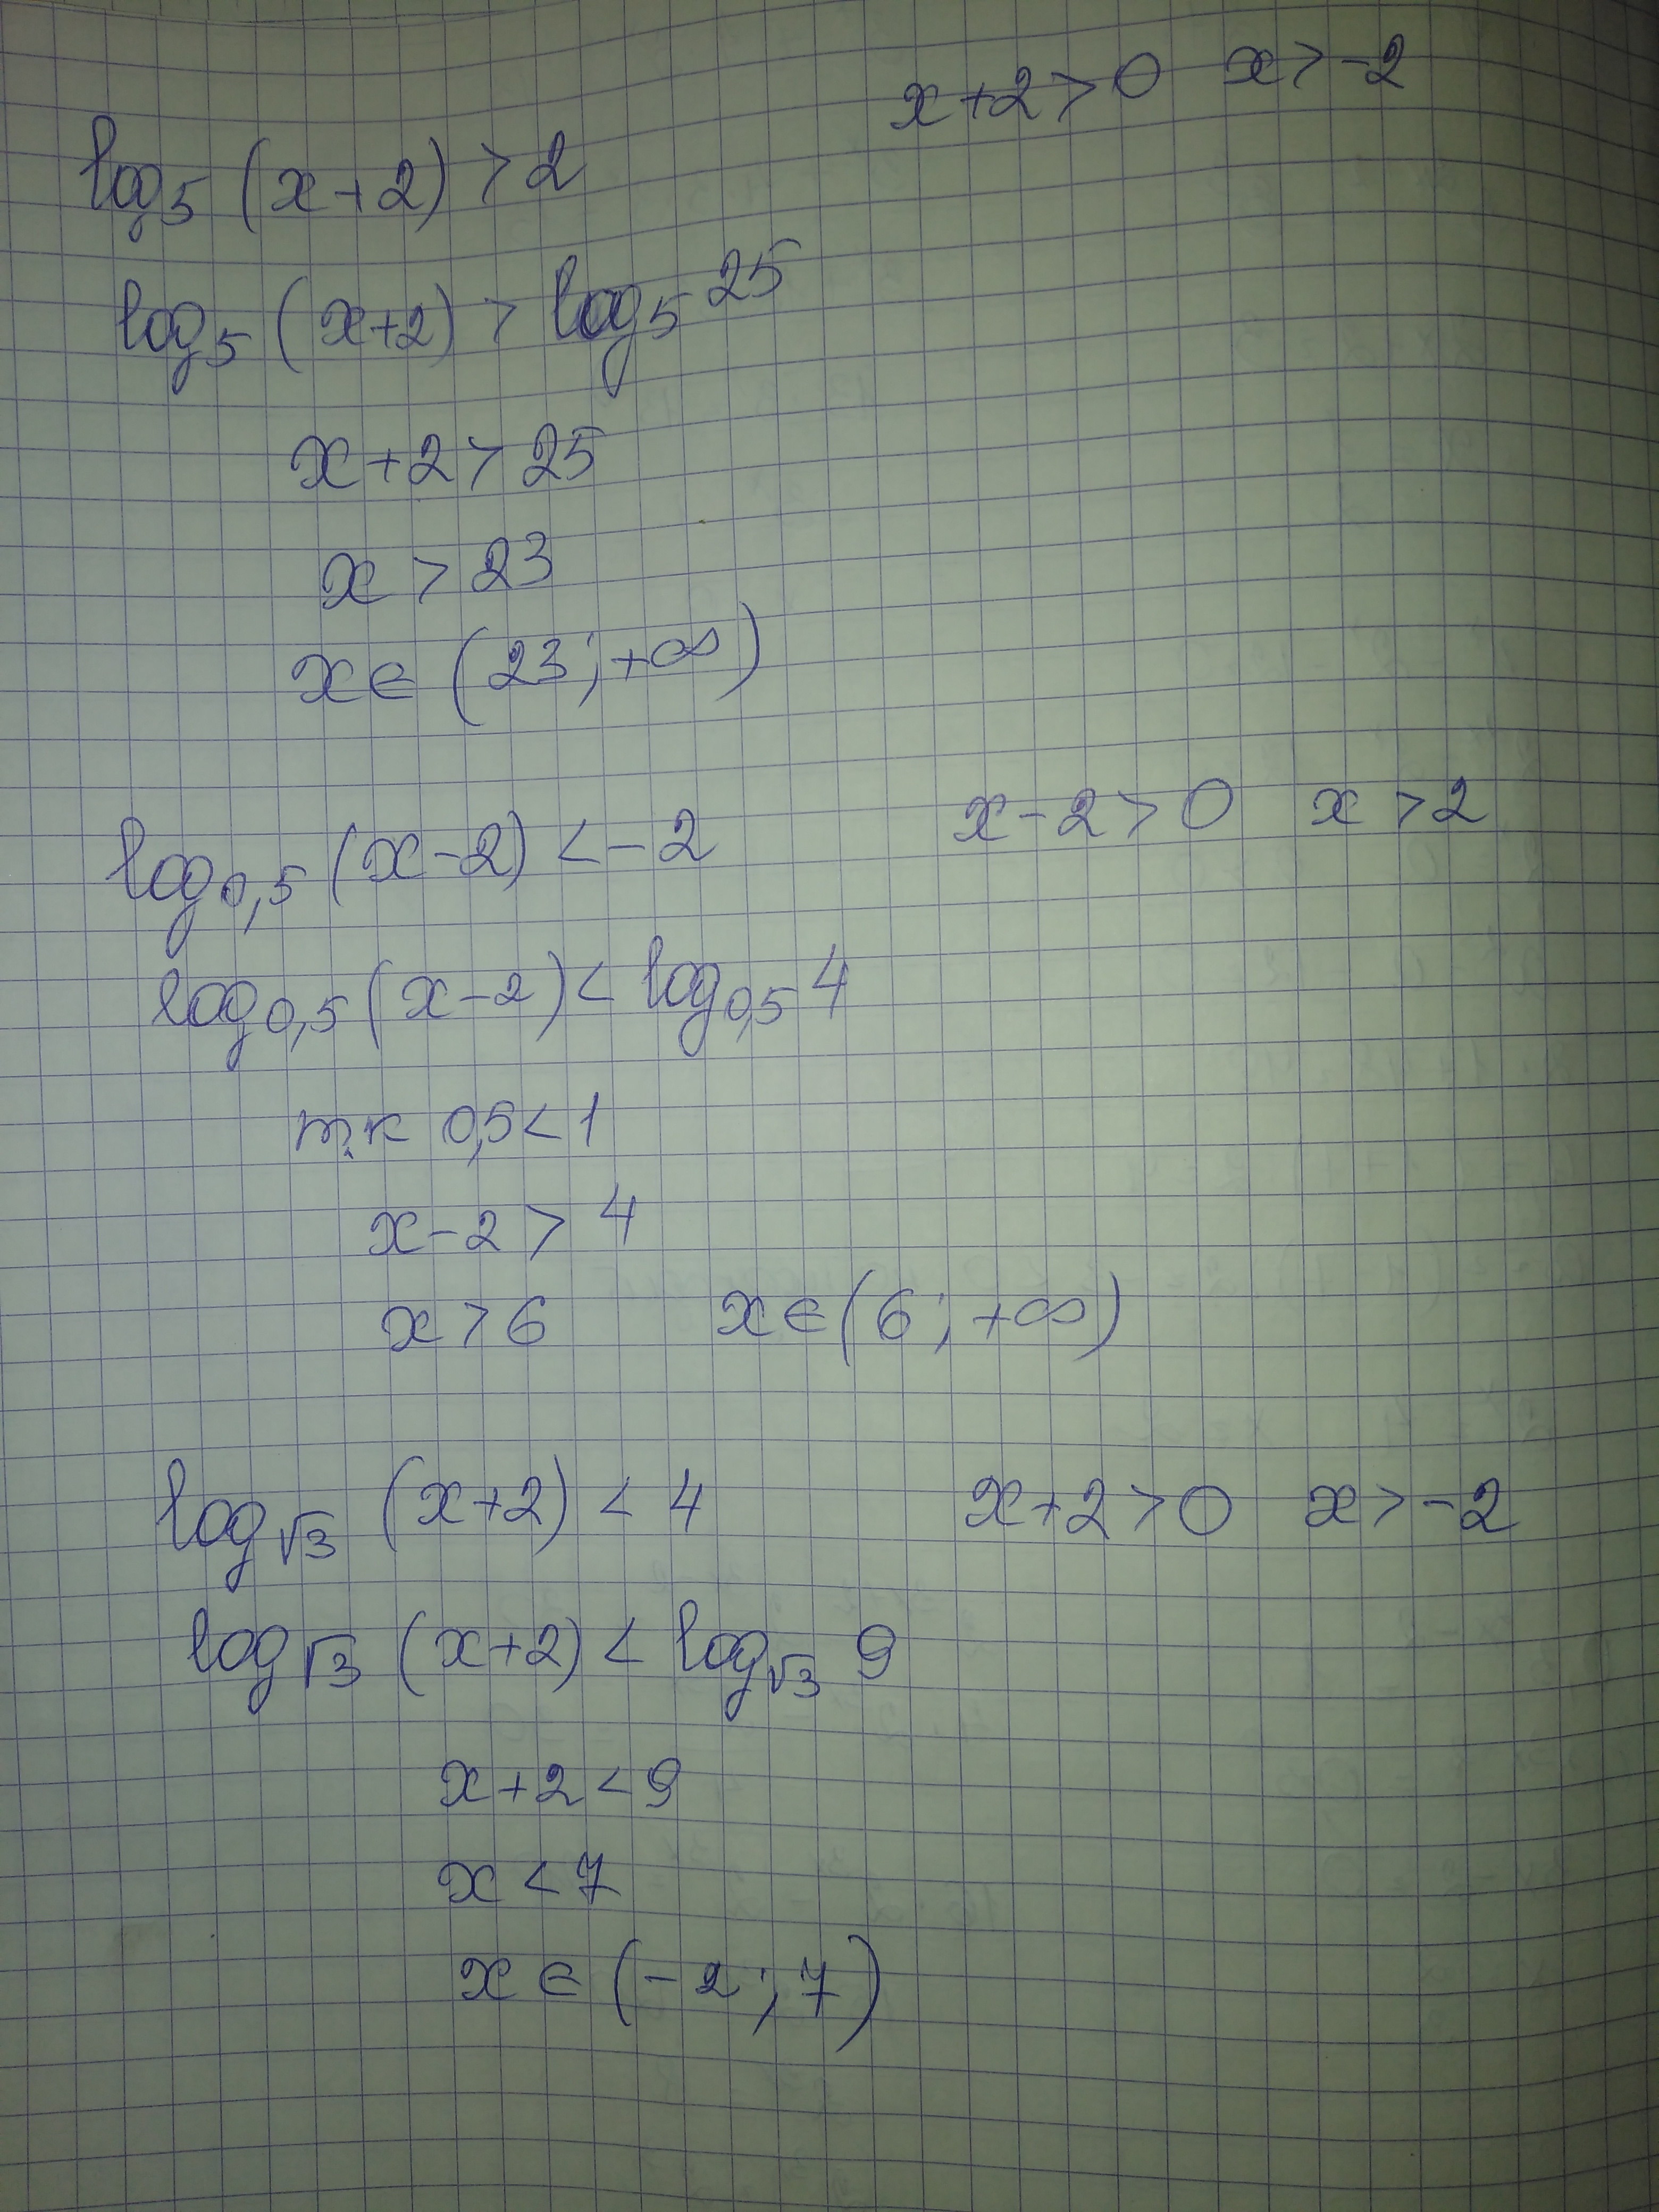 x+2>0 x>-2
log₅ (x+2) >2
log₅ (x+2) > log₅ 25
x+2>25
x > 23
x∈ (23; +∞)
log₀,₅ (x-2) < -2 x-2>0 x >2
log₀,₅ (x-2) < log₀,₅ 4
т.к 0,5<1
x-2 > 4
x >6 x∈(6; +∞)
log√3 (x+2) < 4 x+2>0 x>-2
log√3 (x+2) < log√3 9
x+2<9
x <7
x ∈ (-2; 7)